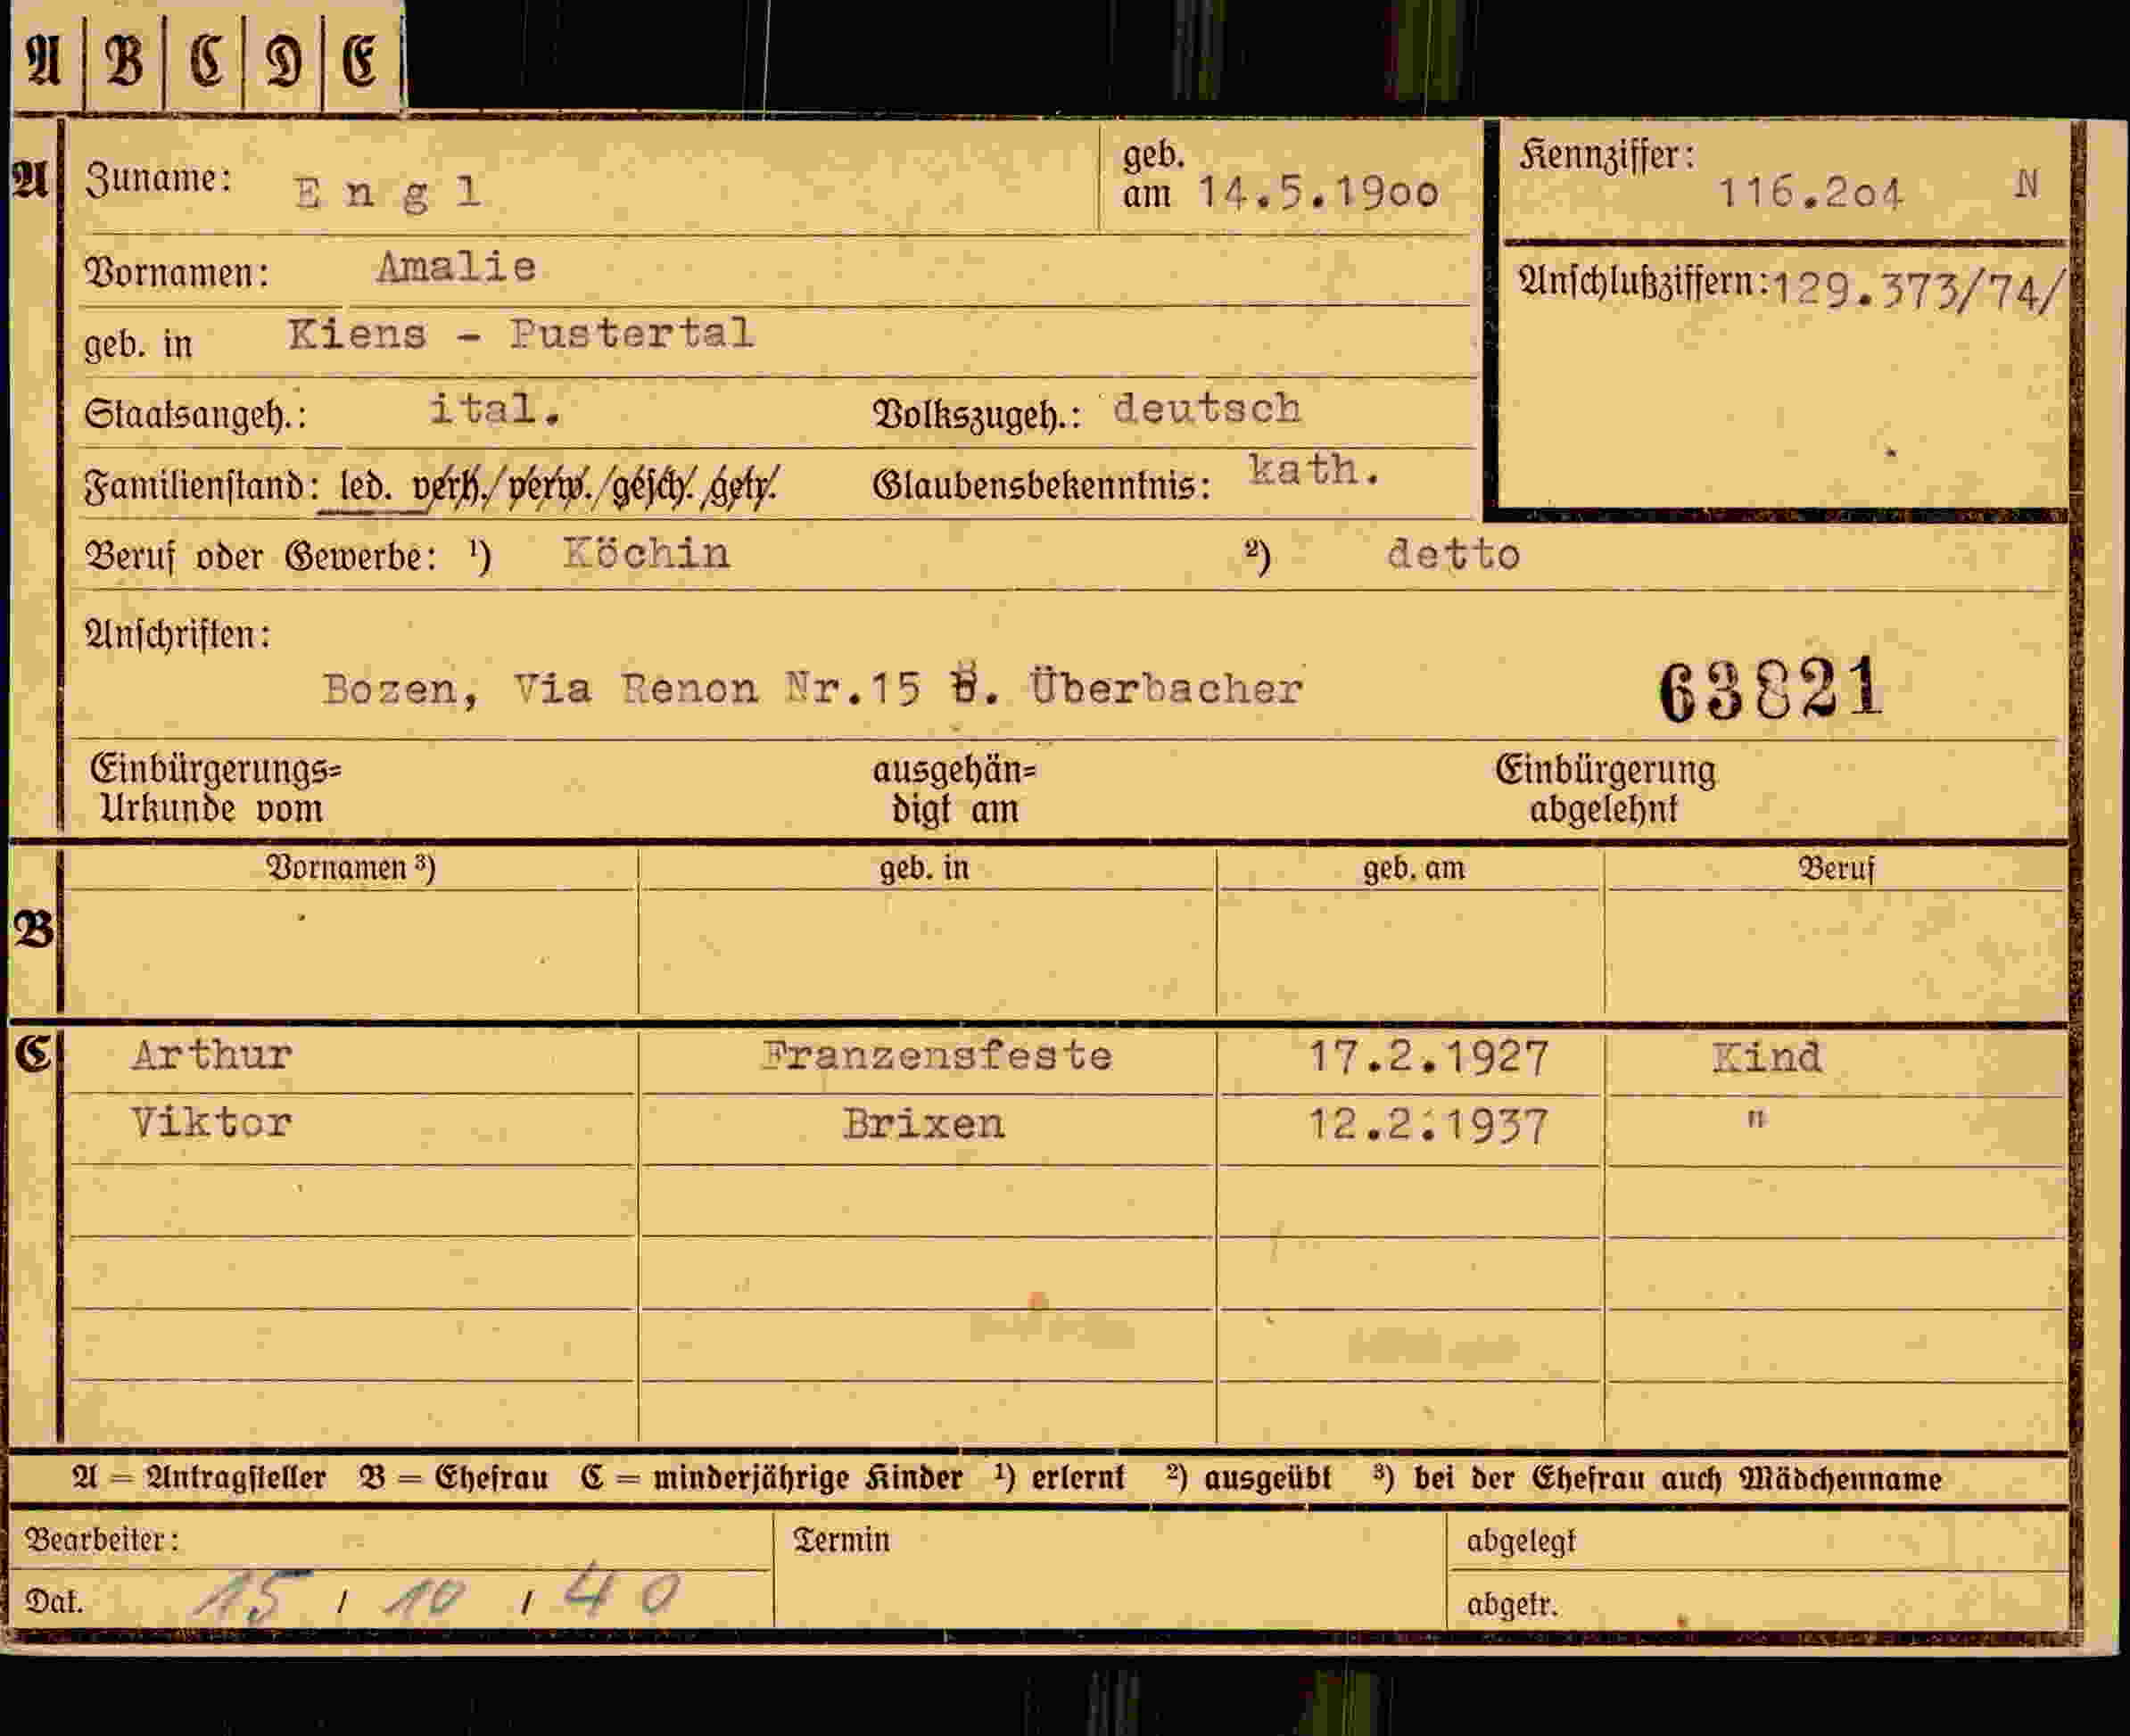 A B C D E
A Zuname: Engl geb. am 14.5.1900 Kennziffer: 116.204 N
Vornamen: Amalie Anschlußziffern: 129.373/74/
geb. in Kiens - Pustertal
Staatsangeh.: ital. Volkszugeh.: deutsch
Familienstand: led. verh./verw./gesch./getr. Glaubensbekenntnis: kath.
Beruf oder Gewerbe: ¹) Köchin ²) detto
Anschriften:
Bozen, Via Renon Nr.15 B. Überbacher 63821
Einbürgerungs= ausgehän= Einbürgerung
Urkunde vom digt am abgelehnt
Vornamen ³) geb. in geb. am Beruf
B
C Arthur Franzensfeste 17.2.1927 Kind
Viktor Brixen 12.2:1937 "
A = Antragsteller B = Ehefrau C = minderjährige Kinder ¹) erlernt ²) ausgeübt ³) bei der Ehefrau auch Mädchenname
Bearbeiter: Termin abgelegt
Dat. 15 / 10 / 40 abgetr.